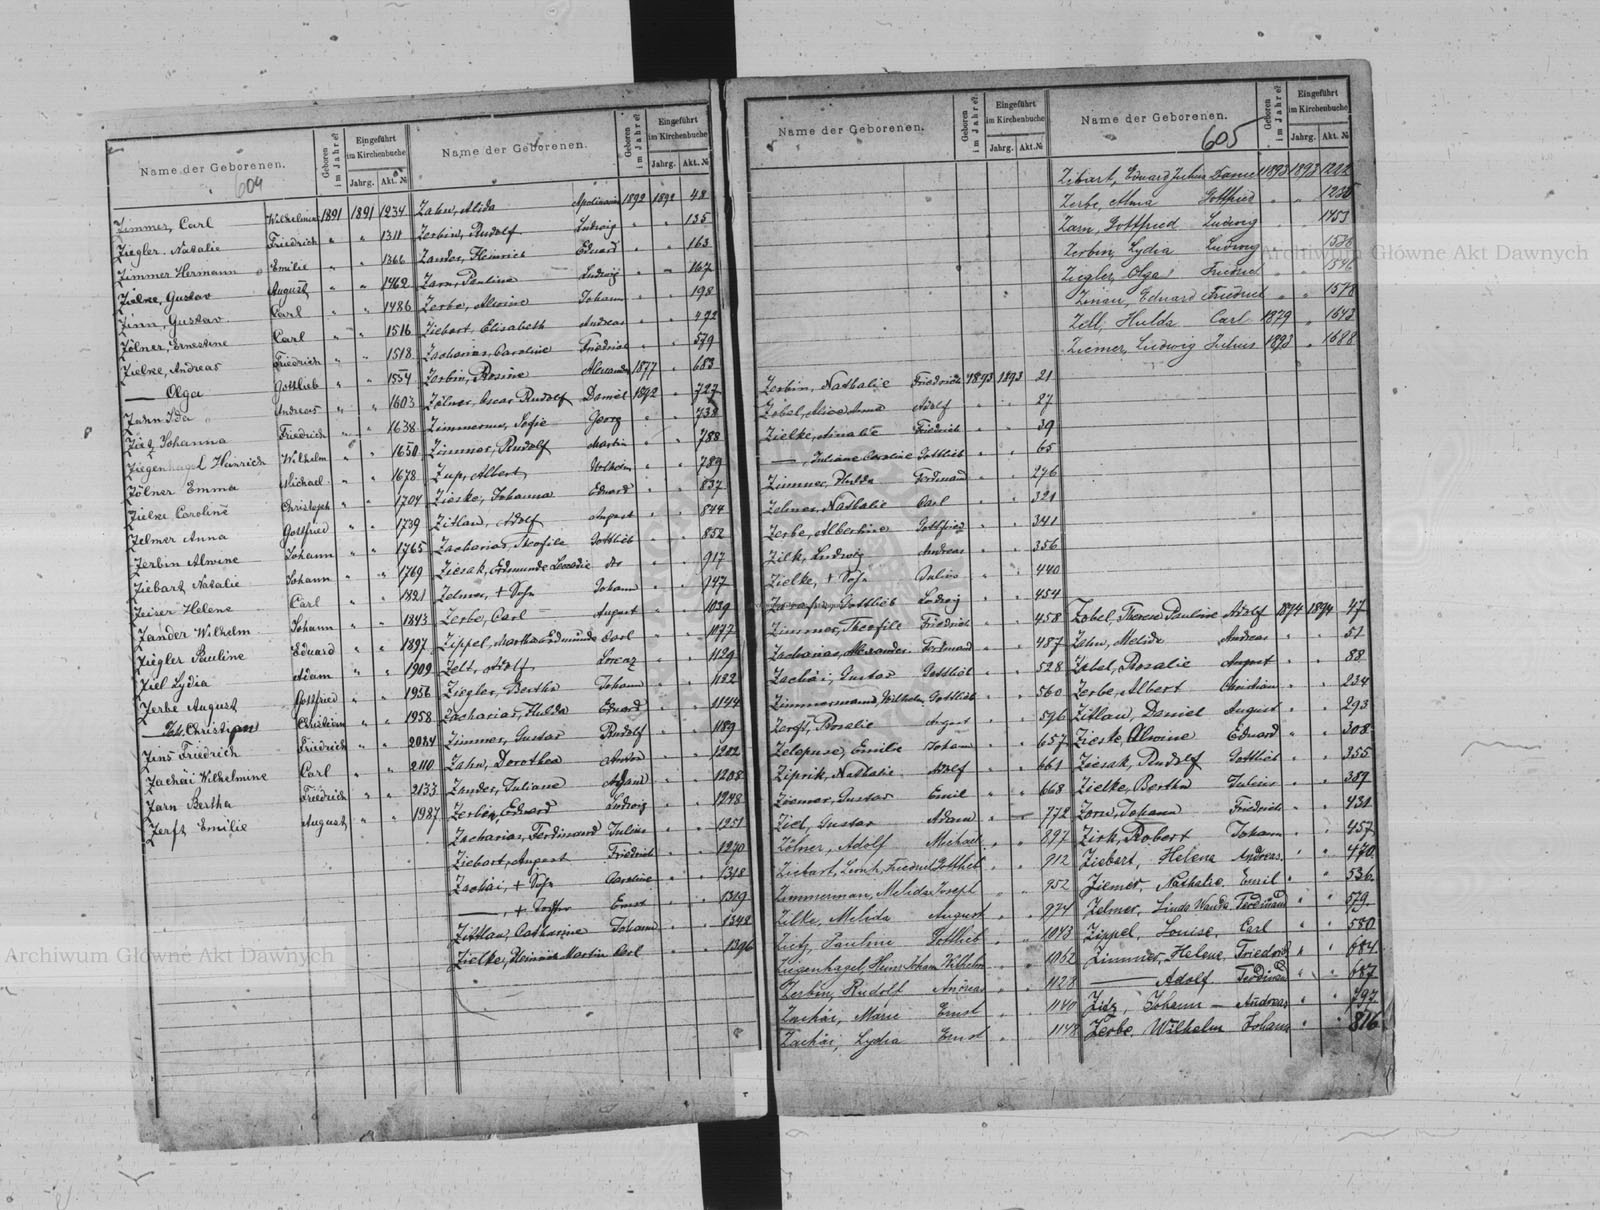 Name der Geborenen.
Geboren im Jahre
Eingeführt im Kirchenbuche
Jahrg. Akt. №
604
Zimmer, Carl Wilhelm 1891 1891 1234
Ziegler, Natalie Friedrich " " 1311
Zimmer Hermann Emilie " " 1366
Zielke, Gustav August " " 1462
Zinn, Gustav Carl " " 1486
Zölner, Ernestine Carl " " 1516
Zielke, Andreas Friedrich " " 1518
— Olga Gottlieb " " 1554
Zahn Ida Andreas " " 1603
Zietz Johanna Friedrich " " 1638
Ziegenhagel Heinrich Wilhelm " " 1650
Zölner Emma Michael " " 1678
Zielke Caroline Christoph " " 1704
Zelmer Anna Gottfried " " 1739
Zerbin Alwine Johann " " 1765
Ziebart Natalie Johann " " 1769
Zeiser Helene Carl " " 1821
Zander Wilhelm Johann " " 1843
Ziegler Pauline Eduard " " 1897
Ziel Lydia Adam " " 1909
Zerbe August Gottfried " " 1956
Christian Christian " " 1958
Zins Friedrich Friedrich " " 2024
Zachäi Wilhelmine Carl " " 2110
Zarn Bertha Friedrich " " 2133
Zerft Emilie August " " 1987
Name der Geborenen.
Geboren im Jahre
Eingeführt im Kirchenbuche
Jahrg. Akt. №
Zahn, Alida 1892 1892 48
Zerbin, Rudolf Ludwig " " 135
Zander, Heinrich Eduard " " 163
Zarn, Pauline Ludwig " " 167
Zerbe, Alwine Johann " " 198
Ziebart, Elisabeth Andreas " " 492
Zacharias, Caroline Friedrich " " 579
Zerbin, Rosine Alexander 1877 " 683
Zölner, Oscar Rudolf Daniel 1892 " 727
Zimmerman, Sofie Georg " " 738
Zimmer, Rudolf Martin " " 788
Zup, Albert Wilhelm " " 789
Zieske, Johanna Eduard " " 837
Zitlau, Adolf August " " 844
Zacharias, Theofile Gottlieb " " 852
Ziesak, Erdmunde Leocadie " " 917
Zelmer, + Sohn Johann " " 947
Zerbe, Carl August " " 1039
Zippel, Martha Erdmunde Carl " " 1077
Zelt, Adolf Lorenz " " 1129
Ziegler, Bertha Johann " " 1182
Zacharias, Hulda Eduard " " 1144
Zimmer, Gustav Rudolf " " 1189
Zahn, Dorothea Anton " " 1202
Zander, Juliane Adam " " 1208
Zerbin, Eduard Ludwig " " 1248
Zacharias, Ferdinand Julius " " 1251
Ziebart, August Friedrich " " 1270
Zachäi, + Sohn Caroline " " 1318
—, + Tochter Ernst " " 1319
Zittlau, Catharine Johann " " 1342
Zielke, Heinrich Martin Carl " " 1396
Name der Geborenen.
Geboren im Jahre
Eingeführt im Kirchenbuche
Jahrg. Akt. №
Zerbin, Nathalie Friedrich 1893 1893 21
Zobel, Alice Anna Adolf " " 27
Zielke, Amalie Friedrich " " 39
—, Juliane Caroline Gottlieb " " 65
Zimmer, Hulda Ferdinand " " 276
Zelmer, Nathalie Carl " " 321
Zerbe, Albertine Gottfried " " 341
Zilk, Ludwig Andreas " " 356
Zielke, + Sohn Julius " " 440
Gottlieb Ludwig " " 454
Zimmer, Theofile Friedrich " " 458
Zacharias, Alexander Ferdinand " " 487
Zachäi, Gustav Gottlieb " " 528
Zimmermann, Wilhelm Gottlieb " " 560
Zerft, Rosalie August " " 596
Emilie Johann " " 657
Ziprik, Nathalie Adolf " " 661
Ziemer, Gustav Emil " " 668
Ziel, Gustav Adam " " 772
Zölner, Adolf Michael " " 897
Ziebart, Leonh. Friedrich Gottlieb " " 912
Zimmerman, Melida Joseph " " 952
Zilke, Melida August " " 974
Zietz, Pauline Gottlieb " " 1043
Ziegenhagel, Heinr. Johann Wilhelm " " 1062
Zerbin, Rudolf Andreas " " 1128
Zachäi, Marie Ernst " " 1140
Zachäi, Lydia Ernst " " 1148
Name der Geborenen.
605
Geboren im Jahre
Eingeführt im Kirchenbuche
Jahrg. Akt. №
Zibart, Eduard Julius Daniel 1893 1893 1222
Zerbe, Alma Gottfried " "
Zarn, Gottfried Ludwig " " 1453
Zerbin, Lydia Ludwig " "
Ziegler, Olga Friedrich " " 1546
Eduard Friedrich " " 1578
Zell, Hulda Carl 1879 " 1643
Ziemer, Ludwig Julius 1893 " 1688
Zobel, Therese Pauline Adolf 1894 1894 47
Zahn, Melida Andreas " " 51
Zabel, Rosalie August " " 88
Zerbe, Albert Christian " " 234
Zitlau, Daniel August " " 293
Zieske, Alwine Eduard " " 308
Ziesak, Rudolf Gottlieb " " 355
Zielke, Bertha Julius " " 387
Zorn, Johann Friedrich " " 431
Zirk, Robert Johann " " 457
Ziebart, Helene Andreas " " 470
Ziemer, Nathalie Emil " " 536
Zelmer, Linda Wanda Ferdinand " " 579
Zippel, Louise, Carl " " 580
Zimmer, Helene Friedrich " " 684
— Adolf Ferdinand " " 687
Zietz, Johann — Andreas " " 797
Zerbe, Wilhelm Johann " " 816
Archiwum Główne Akt Dawnych
Archiwum Główne Akt Dawnych